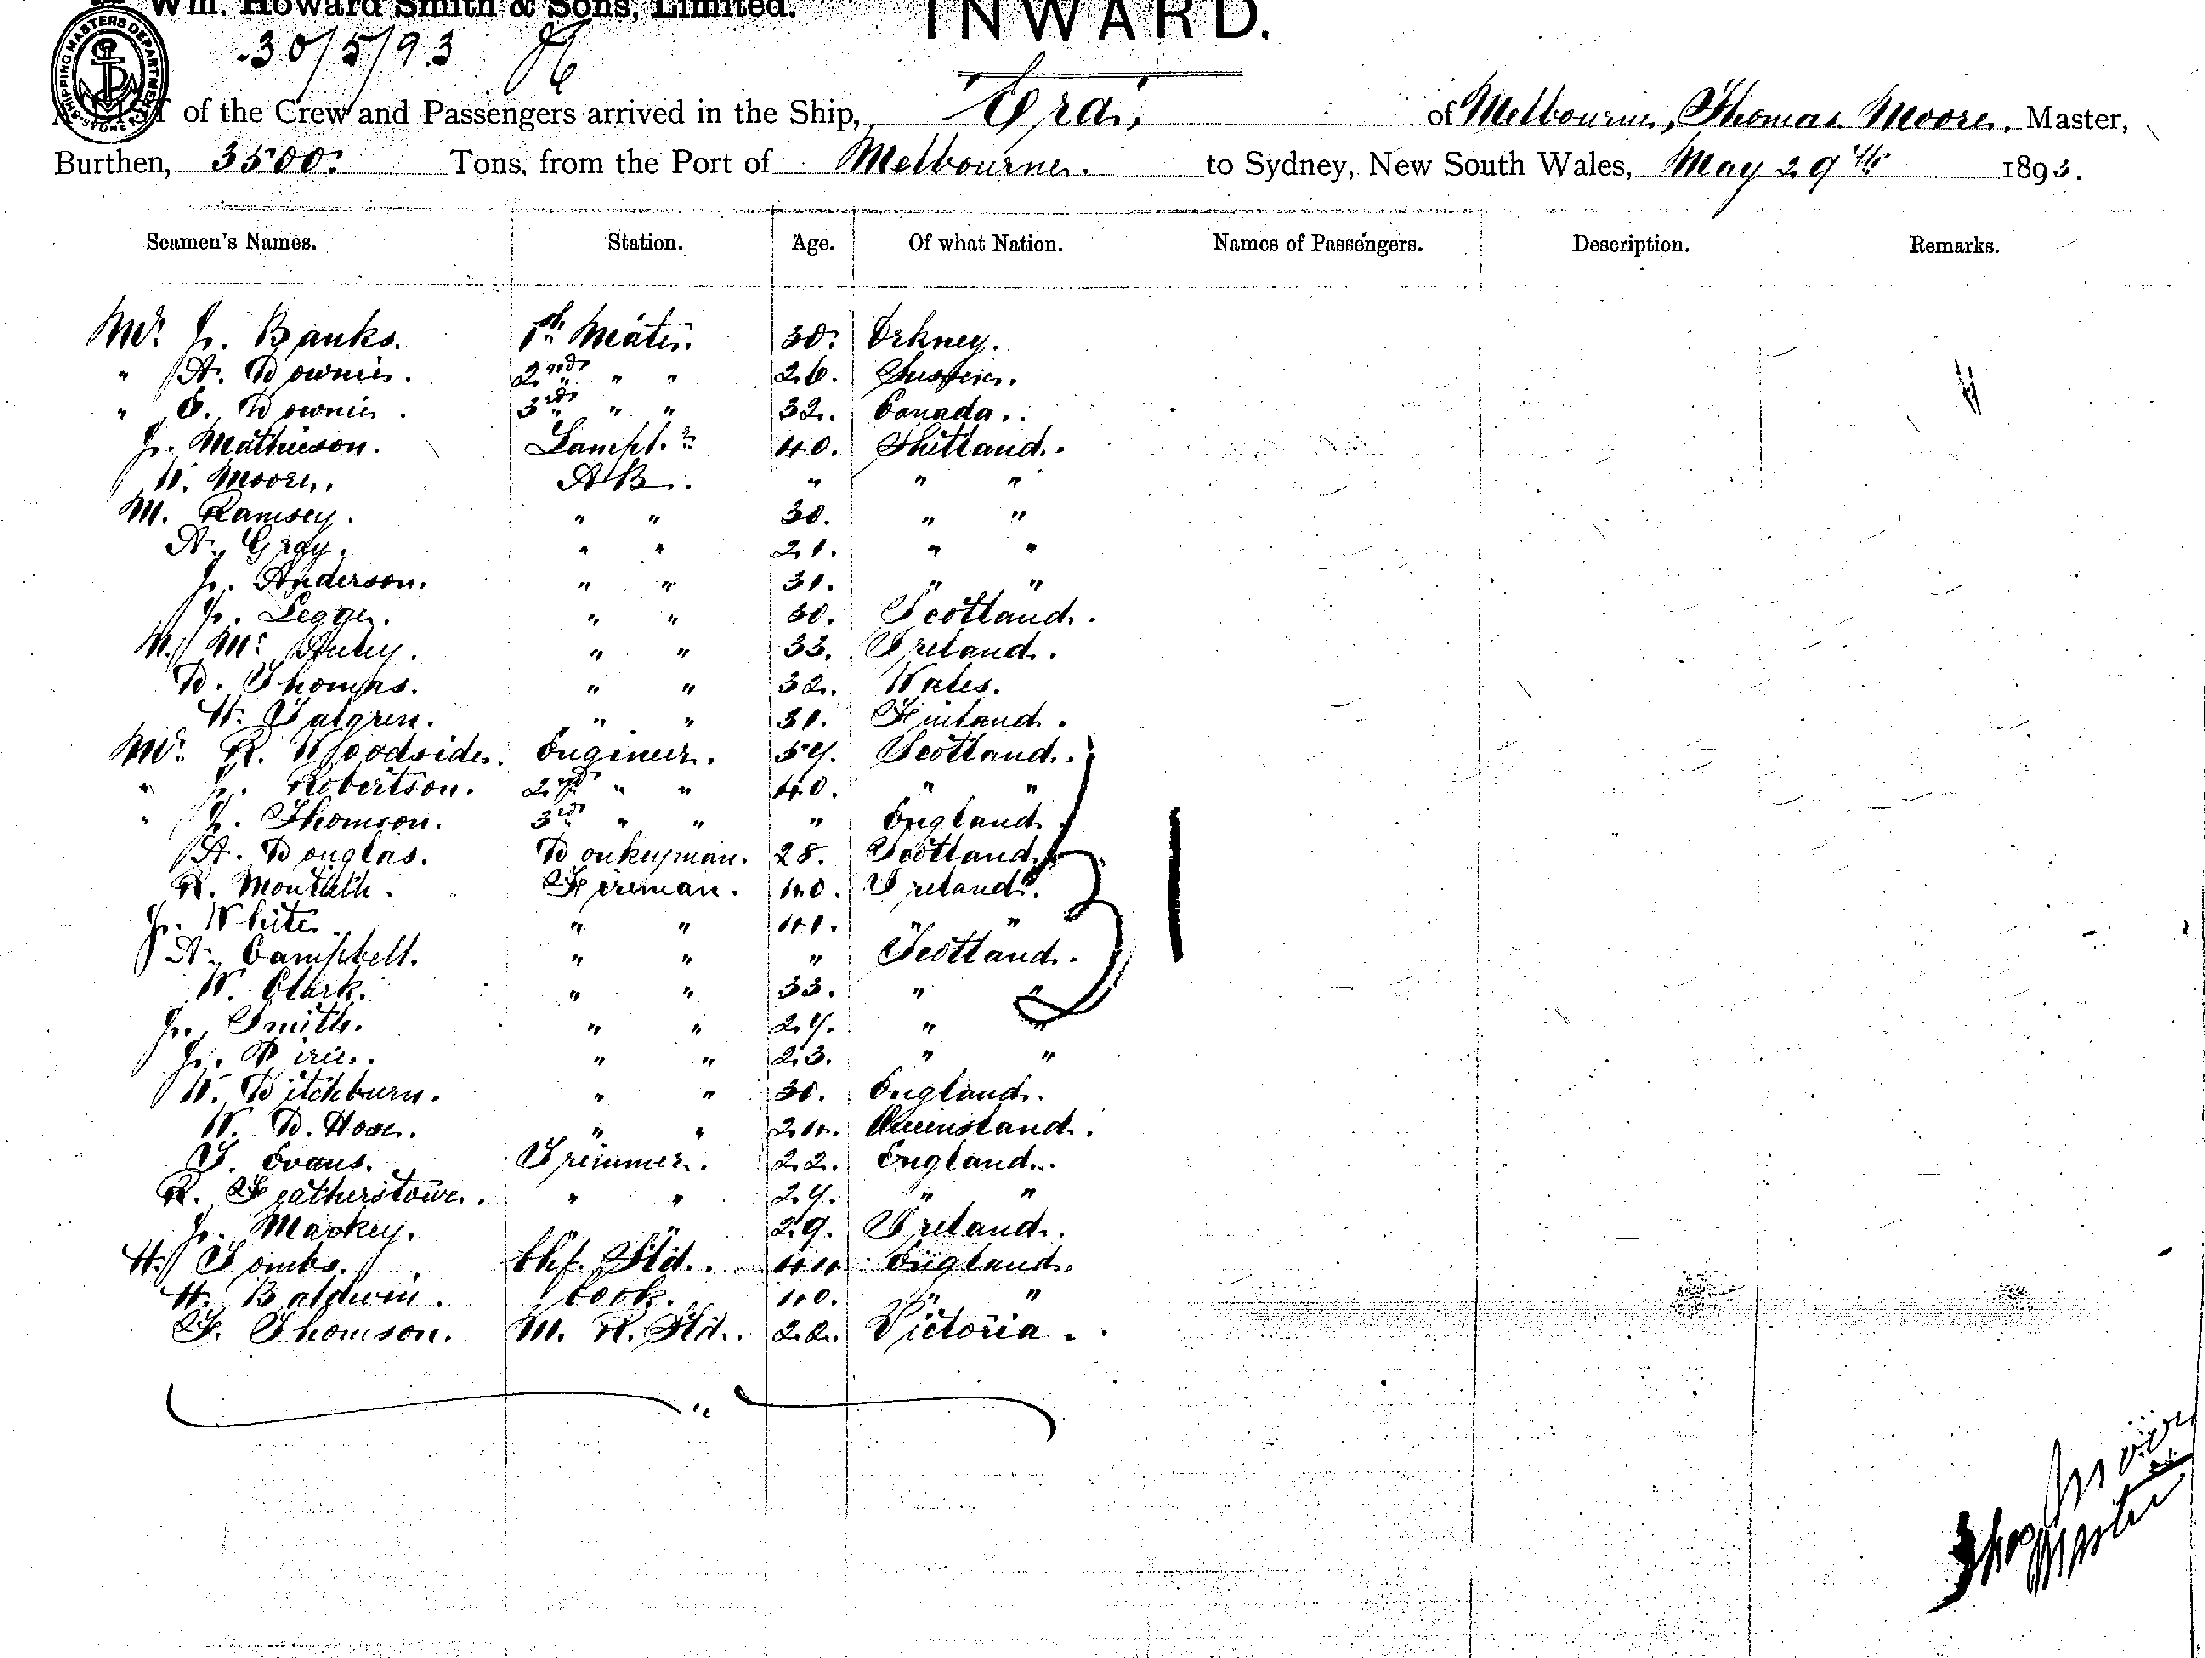 Wm. Howard Smith & Sons, Limited.
INWARD.
SHIPPING MASTERS DEPARTMENT
30/5/93
LIST of the Crew and Passengers arrived in the Ship, Era, of Melbourne, Thomas Moore, Master,
Burthen, 3500. Tons, from the Port of Melbourne. to Sydney, New South Wales, May 29th 1893.
Seamen's Names. Station. Age. Of what Nation. Names of Passengers. Description. Remarks.
Mr. J. Banks. 1st Mate. 30. Orkney.
" A. Downie. 2nd " " 26.
" E. Downie. 3rd " " 32. Canada.
J. Mathieson. Lampt.r 40. Shetland.
W. Moore. AB. " " "
M. Ramsey. " " 30. " "
A. Gray. " " 21. " "
J. Anderson. " " 31. " "
J. Legge. " " 30. Scotland.
M. Mc " " 33. Ireland.
D. Thomas. " " 32. Wales.
H. Talgren. " " 31. Finland.
Mr. R. Woodside. Engineer. 57. Scotland.
" J. Robertson. 2nd " " 40. " "
" J. Thomson. 3rd " " " England.
A. Douglas. Donkeyman. 28. Scotland.
R. Monteith. Fireman. 40. Ireland.
J. White. " " 41. " "
A. Campbell. " " " Scotland.
W. Clark. " " 33. " "
J. Smith. " " 27. " "
J. Pirie. " " 23. " "
W. Ditchburn. " " 30. England.
W. D. Hose. " " 24. Queensland.
T. Evans. Trimmer. 22. England.
R. Featherstone. " " 27. " "
J. Mackey. " " 29. Ireland.
H. Tombs. Chf. Std. 44 England.
H. Baldwin. Cook. 40. " "
F. Thomson. M. R. Std. 22. Victoria.
Thos Moore
Master